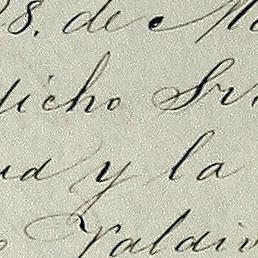 8. de
dicho Sr
ud y la
Valdiv